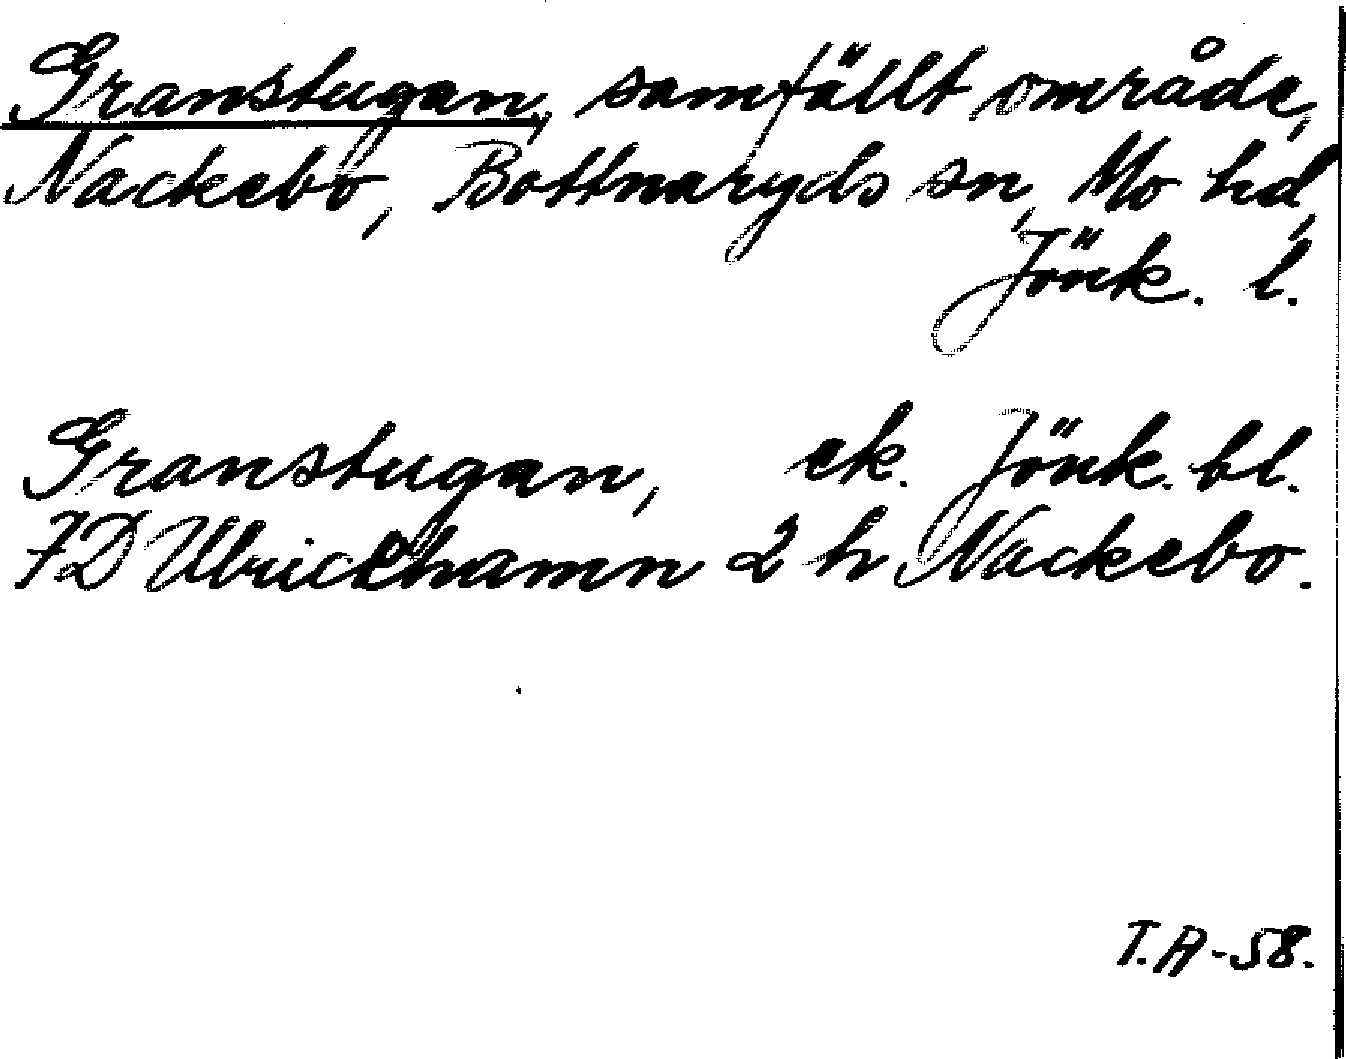 Granstugan, samfällt område,
Nackebo, Bottnaryds sn, Mo hd,
Jönk. l.
Granstugan, ek. Jönk. bl.
7D Ulricehamn 2 h Nackebo.
T.A-58.